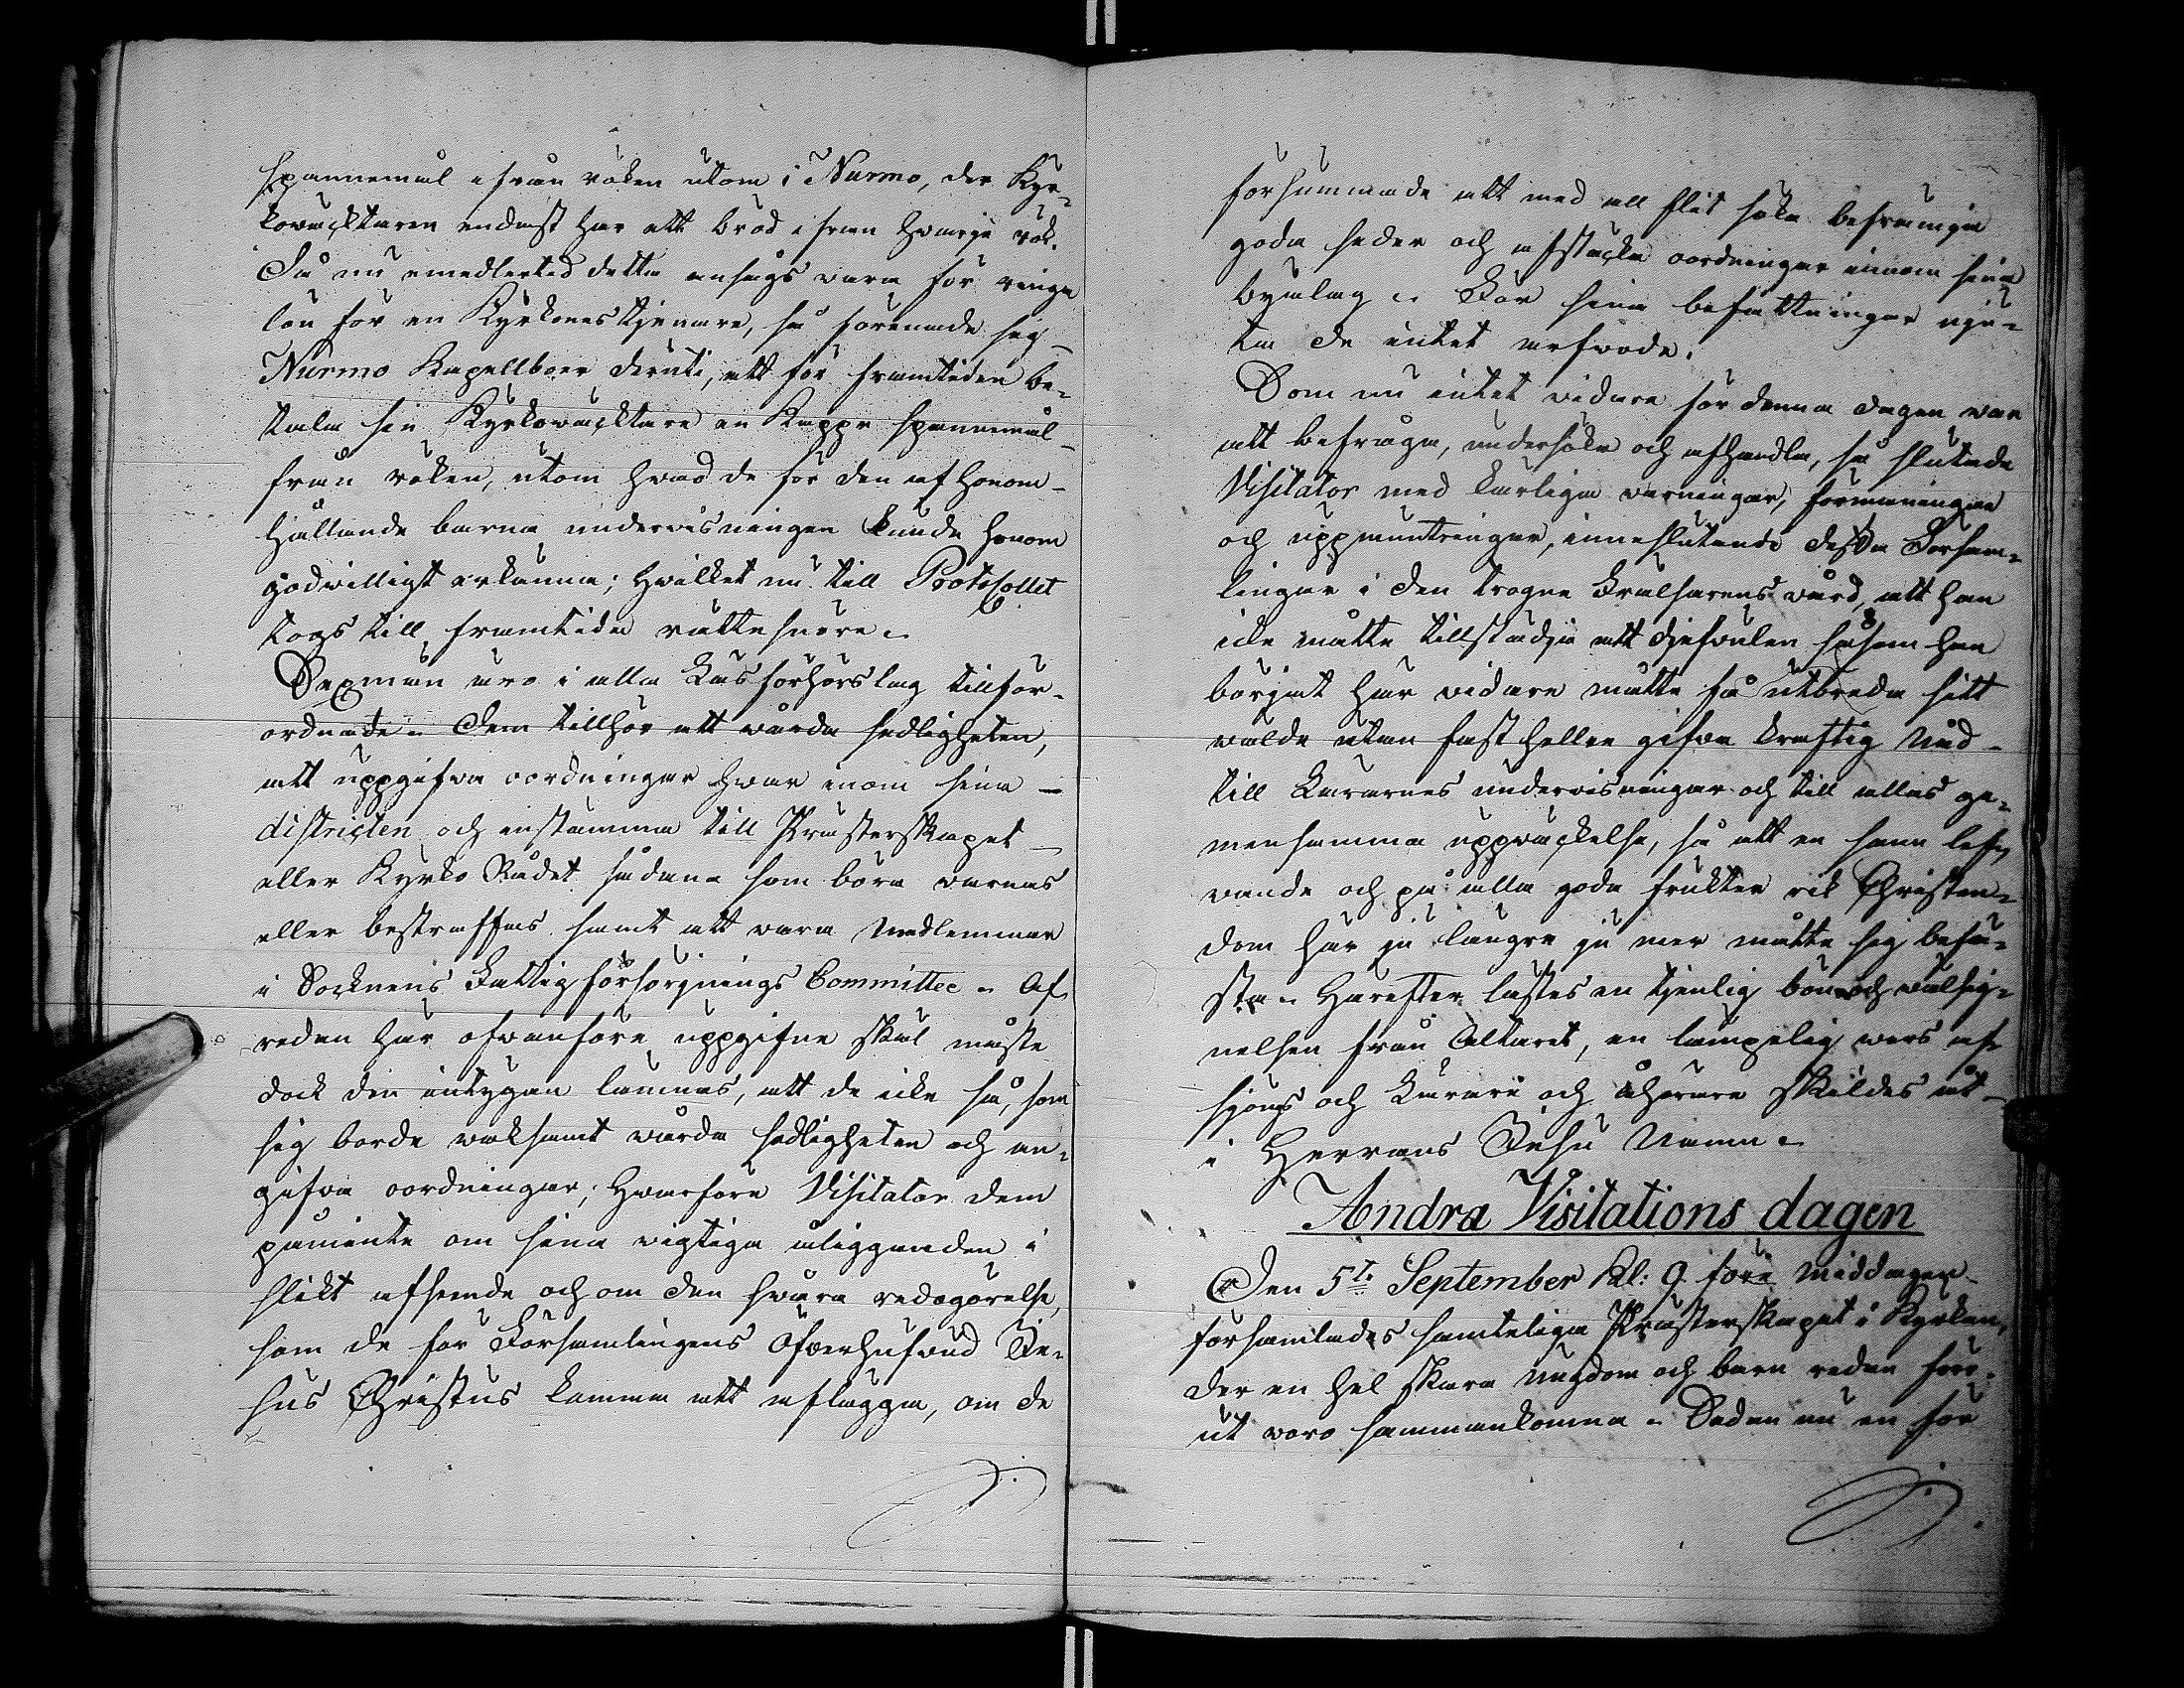 spannemål ifrån röken utom i Nurmo, der Kyr-
koväcktaren endast har ett bröd ifrån hvarje rök.
Då nu emedlertid detta ansågs vara för ringa
lön för en Kyrkones tjenare, så förenade sig
Nurmo Kapellboer deruti, att för framtiden be-
tala sin Kyrkoväcktare en Kappe spannemål
från röken, utom hvad de för den af honom
hållande barna undervisningen kunde honom
godvilligt erkänna; hvilket nu till Protocollet
togs till framtida rättesnöre.
Sexmän äro i alla Läsförhörslag tillför-
ordnade. Dem tillhör att vårda sedligheten,
att uppgifva oordningar hvar inom sina
districter och instämma till Prästerskapet
eller Kyrko Rådet sådana som böra varnas
eller bestraffas samt att vara Medlemmar
i Socknens Fattigförsörjnings Committee. Af
redan här ofvanföre uppgifne skäl måste
dock den intygan lämnas, att de icke så, som
sig borde vaksamt vårda sedligheten och an-
gifva oordningar; Hvarföre Visitator dem
påminte om sina vigtiga åligganden i
slikt afseende och om den svåra redogörelse,
som de för Församlingens Öfverhufvud Je-
sus Christus komma att aflägga, om de
försummade att med all flit söka befrämja
goda seder och afstäcka oordningar innom sina
byalag. För sina befattningar nju-
ta de intet arfvode.
Som nu intet vidare för denna dagen var
att befråga, undersöka och afhandla, så slutade
Visitator med kärliga varningar, förmaningar
och uppmuntringar, inneslutande dessa Försam-
lingar i den trogne Frälsarens vård, att han
icke måtte tillstädja att djefvulen såsom han
börjat här vidare måtte få utbreda sitt
välde utan fast hellre gifva kraftig Nåd
till Lärarnes undervisningar och till allas ge-
mensamma uppväckelse, så att en sann lef-
vande och på alla goda frukter rik Christen-
dom här ju längre ju mer måtte sig befä-
sta. Härefter lästes en tjenlig bön och välsig-
nelsen från Altaret, en lämpelig vers af
sjöngs och Lärare och åhörare skildes åt
i Herrans Jesu Namn.
Andra Visitations dagen
Den 5te September Kl: 9. före middagen
församlades samteliga Prästerskapet i Kyrkan,
der en hel skara ungdom och barn redan för-
ut voro sammankomna. Sedan nu en för